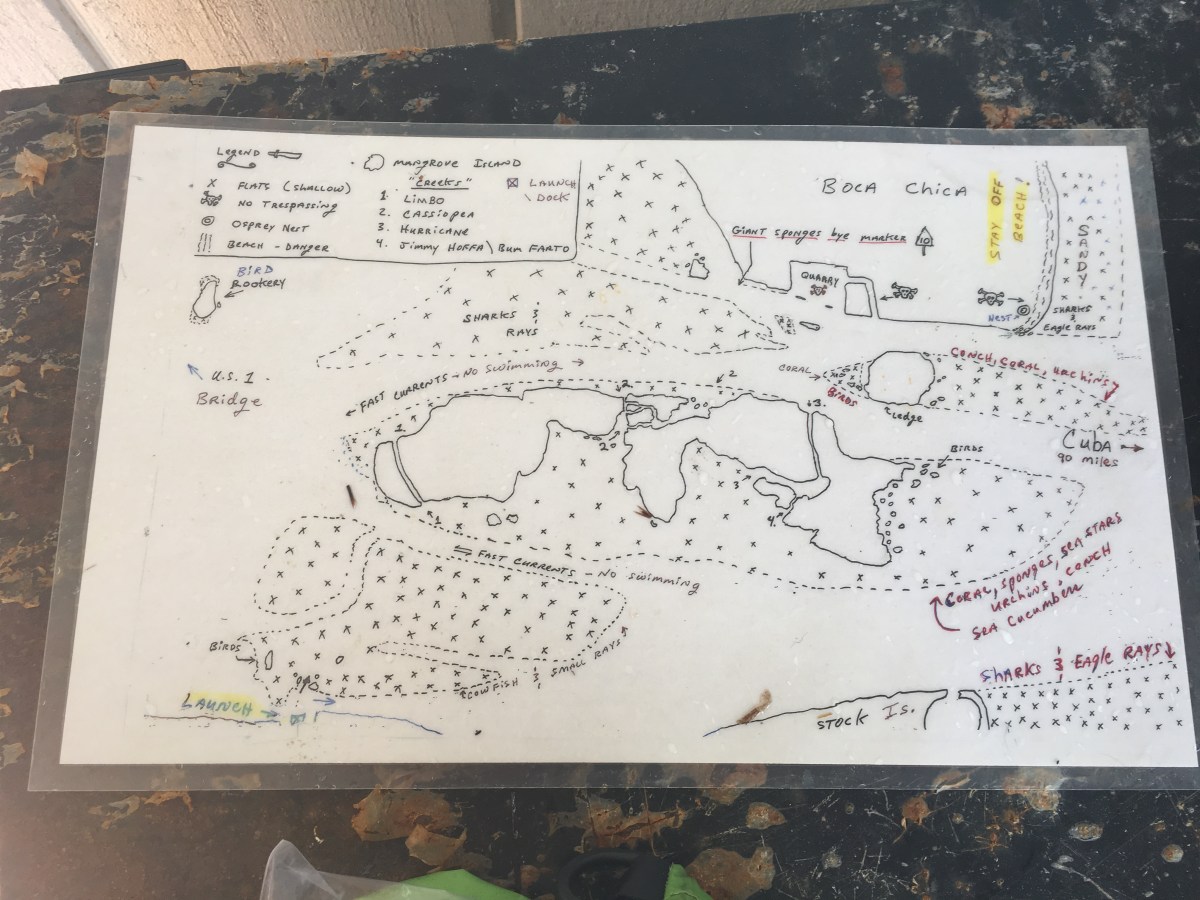 Legend
MANGROVE ISLAND
X FLATS (SHALLOW)
NO TRESPASSING
OSPREY NEST
BEACH - DANGER
"CREEKS"
1. LIMBO
2. CASSIOPEA
3. HURRICANE
4. Jimmy HOFFA \ Bum FARTO
LAUNCH
\ DOCK
BIRD
ROOKERY
U.S. 1
Bridge
SHARKS &
RAYS
GIANT sponges bye marker 10
BOCA CHICA
QUARRY
STAY OFF
BEACH!
SANDY
NEST
SHARKS
&
Eagle RAYS
FAST CURRENTS - NO SWIMMING
CORAL
BIRDS
Ledge
CONCH, CORAL, URCHINS
Cuba
90 miles
BIRDS
1
2
2
3.
1
2
3
4.
FAST CURRENTS - NO SWIMMING
CORAL, SPONGES, SEA STARS
URCHINS, CONCH
SEA CUCUMBERS
BIRDS
COWFISH & SMALL RAYS
LAUNCH
STOCK IS.
SHARKS & EAGLE RAYS